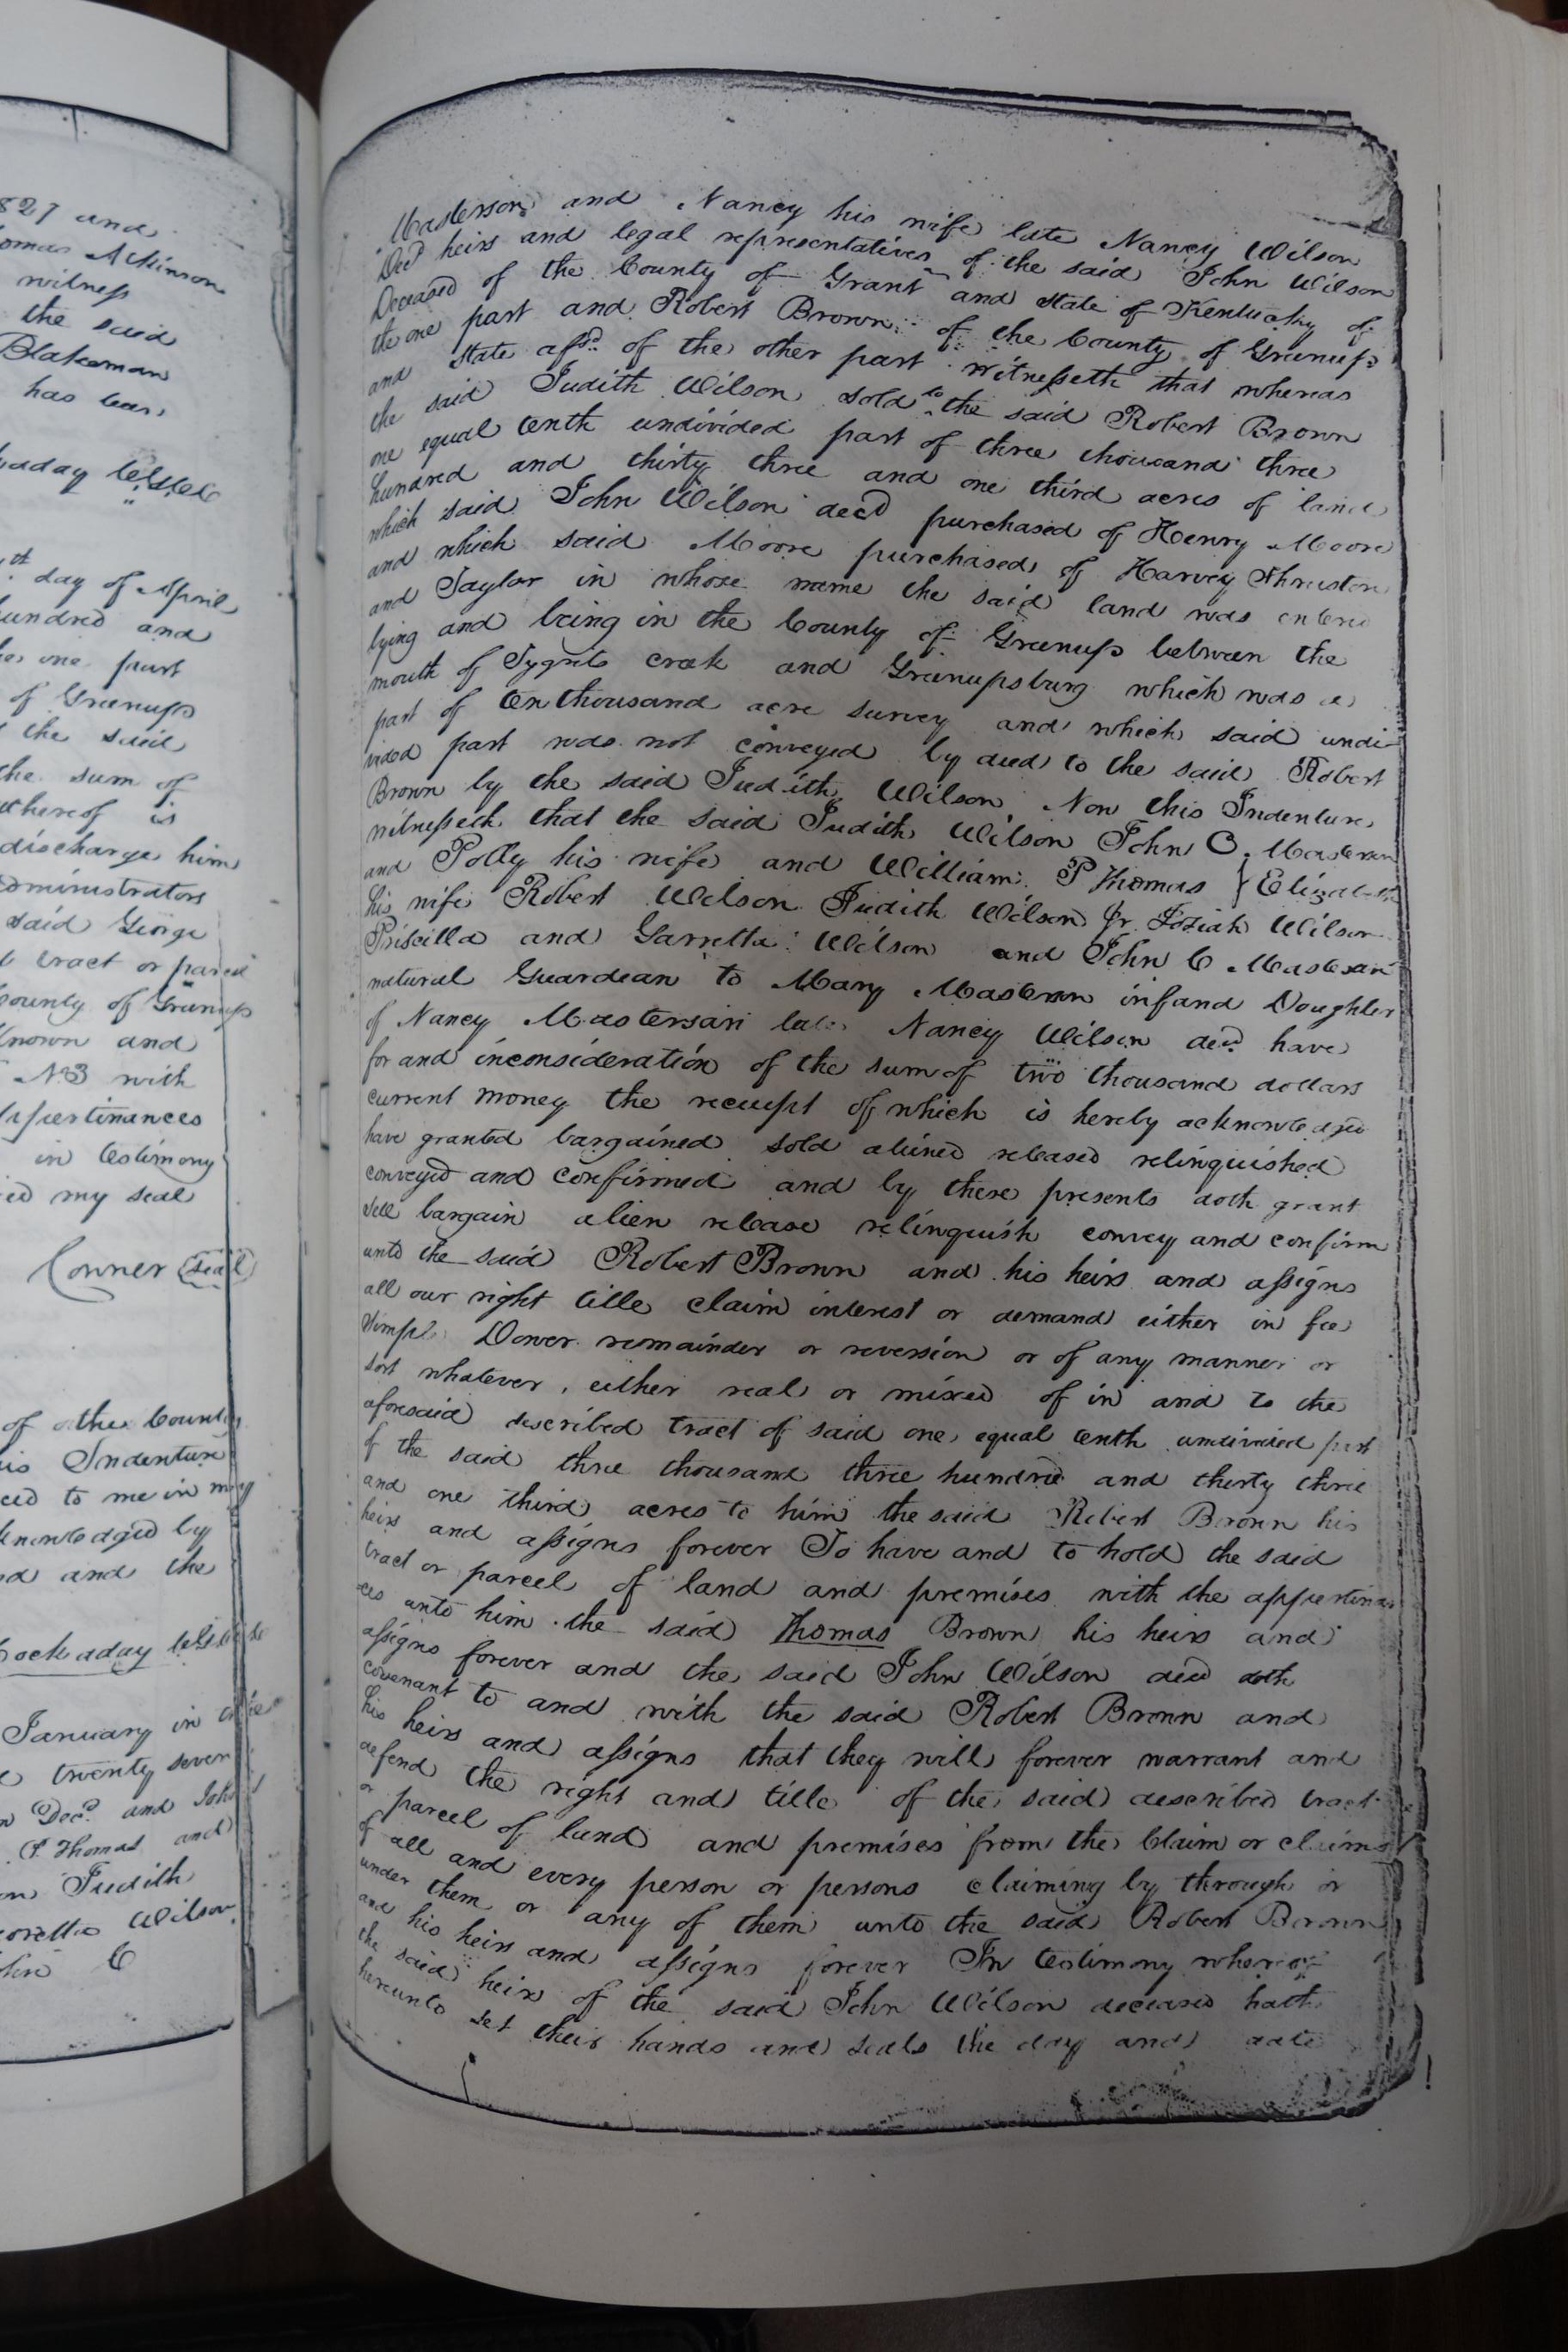 827 and
omas Atkinson
witness
the said
Blakeman
has been
th day of April
hundred and
one part
of Greenup
the said
the sum of
thereof is
discharge him
dministrators
said George
tract or parcel
County of Greenup
known and
No3 with
Appertinances
in testimony
ed my seal
Conner Seal
of the County
is Indenture
ced to me in my
knowledged by
d and the
ockaday
January in
twenty seven
Decd. and John
P. Thomas and
Judith
Wilson
C
Masterson and Nancy his wife late Nancy Wilson
Decd heirs and legal representatives of the said John Wilson
Deceased of the County of Grant and State of Kentucky of
the one part and Robert Brown of the County of Greenup
and State afsd. of the other part witnesseth that whereas
the said Judith Wilson sold to the said Robert Brown
one equal tenth undivided part of three thousand three
hundred and thirty three and one third acres of land
which said John Wilson decd purchased of Henry Moore
and which said Moore purchased of Harvey Thruston
and Taylor in whose name the said land was entered
lying and being in the County of Greenup between the
mouth of Tygrts creek and Greenupsburg which was a
part of ten thousand acre survey and which said undi
vided part was not conveyed by deed to the said Robert
Brown by the said Judith Wilson Now this Indenture
witnesseth that the said Judith Wilson John C. Masterson
and Polly his wife and William P Thomas } Elizabeth
his wife Robert Wilson Judith Wilson Jr. Josiah Wilson
Priscilla and Garretta Wilson and John C Masterson
natural Guardean to Mary Masterson infand Doughter
of Nancy Mastersan late Nancy Wilson decd have
for and inconsideration of the sum of two thousand dollars
current money the receipt of which is hereby acknowledged
have granted bargained sold aliened released relinquished
conveyed and confirmed and by these presents doth grant
sell bargain alien release relinquish convey and confirm
unto the said Robert Brown and his heirs and assigns
all our right title claim interest or demand either in fee
simple Dower remainder or reversion or of any manner or
sort whatever, either real or mixed of in and to the
aforesaid described tract of said one equal tenth undivided part
of the said three thousand three hundred and thirty three
and one third acres to him the said Robert Brown his
heirs and assigns forever To have and to hold the said
tract or parcel of land and premises with the appertinan
ces unto him the said Thomas Brown his heirs and
assigns forever and the said John Wilson decd doth
covenant to and with the said Robert Brown and
his heirs and assigns that they will forever warrant and
defend the right and title of the said described tract
or parcel of land and premises from the Claim or claims
of all and every person or persons claiming by through or
under them or any of them unto the said Robert Brown
and his heirs and assigns forever In testimony whereof
the said heirs of the said John Wilson deceased hath
hereunto set their hands and seals the day and date